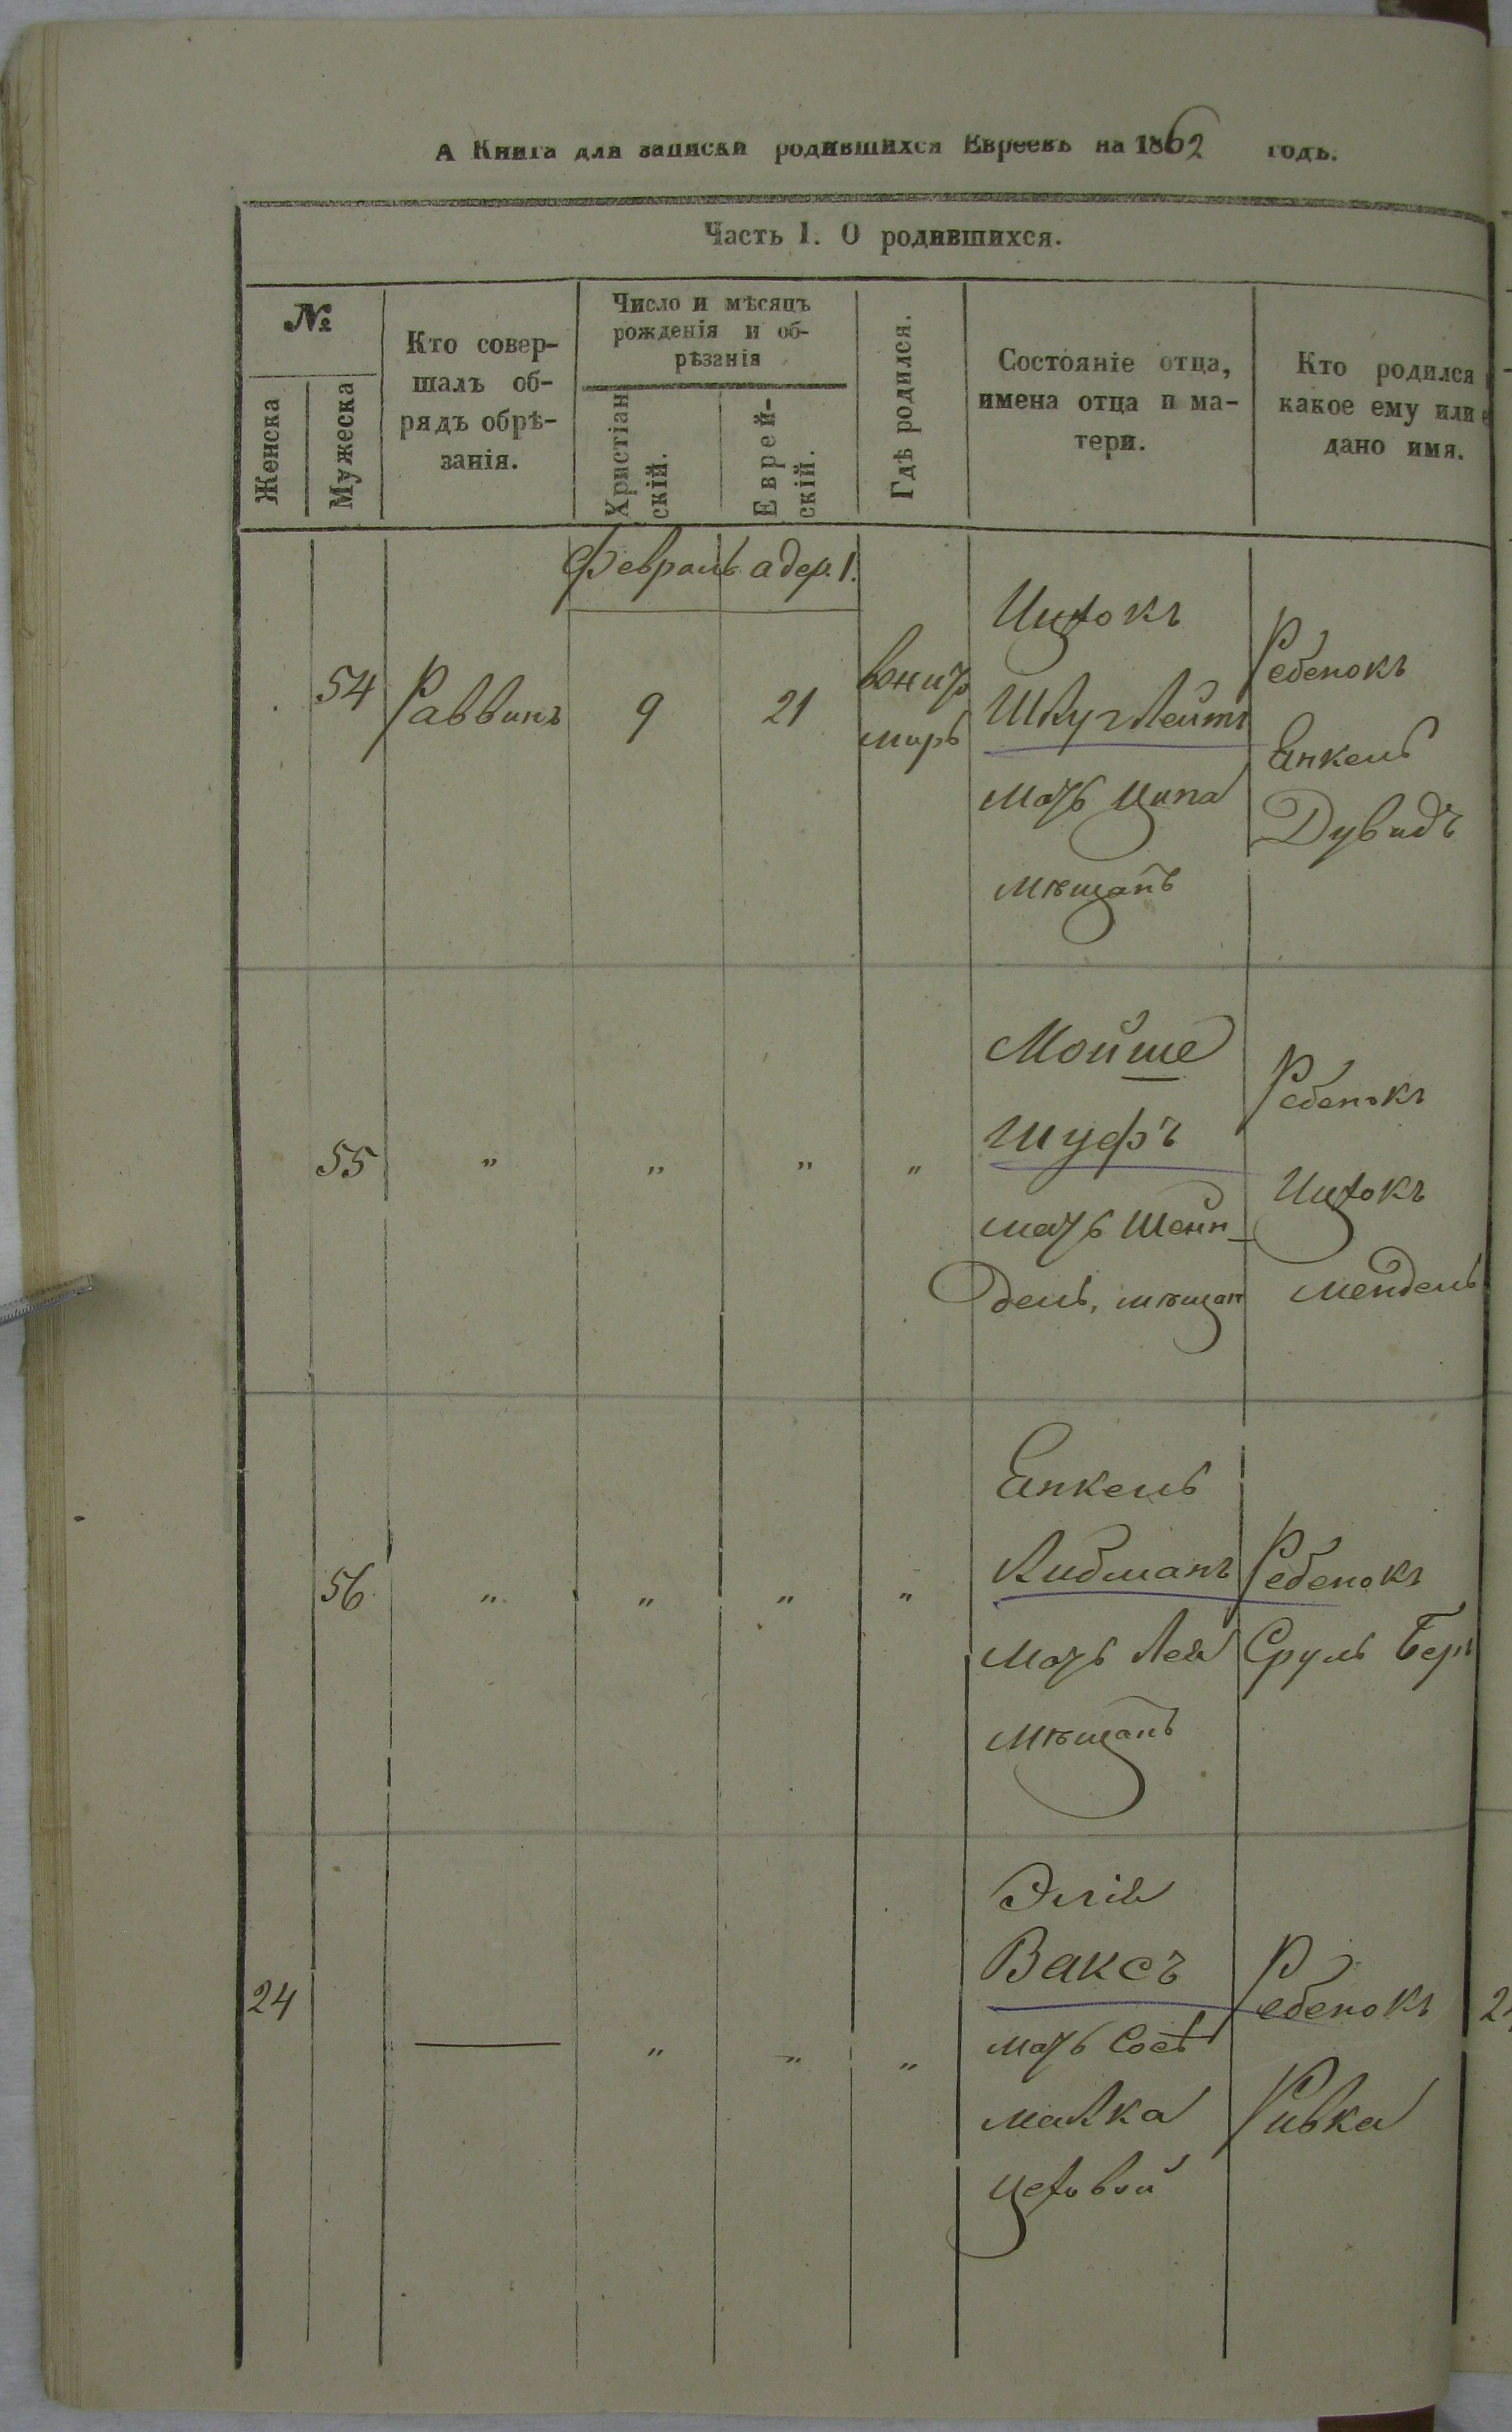 А Книга для записки родившихся Евреевъ на 1862 годъ.
Часть I. О родившихся.
№
Женска
Мужеска
Кто совер-
шалъ об-
рядъ обрѣ-
занія.
Число и мѣсяцъ
рожденія и об-
рѣзанія
Христіан
скій.
Еврей-
скій.
Гдѣ родился.
Состояніе отца,
имена отца и ма-
тери.
Кто родился
какое ему или е
дано имя.
Февраль адер. 1.
54
Раввинъ
9
21
Ицхокъ
мать Ципа
мѣщанъ
Ребенокъ
Янкель
Дувидъ
55
"
"
"
"
Мойше
Шуфъ
мать Шейн-
дель, мѣщан
Ребенокъ
Ицхокъ
Мендель
56
"
"
"
"
Янкель
Либманъ
мать Лея
мѣщанъ
Ребенокъ
Сруль Беръ
24
—
"
"
"
Элія
Ваксъ
мать Сося
малка
цеховой
Ребенокъ
Ривка